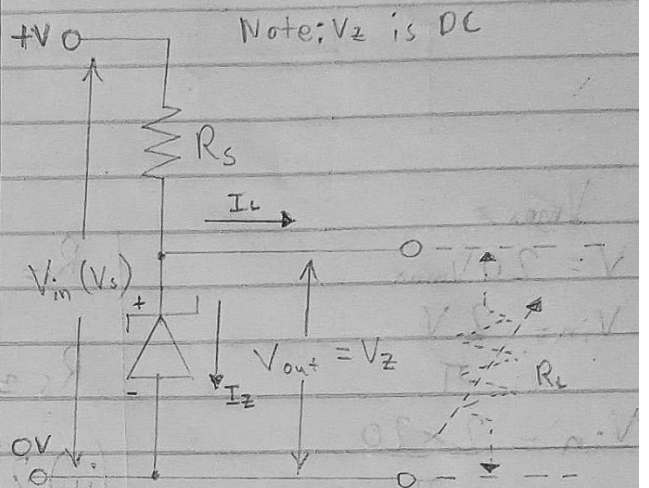 +V Note: Vz is DC
Rs
IL
Vin (Vs)
+
Vout = Vz
-
Iz
RL
0V